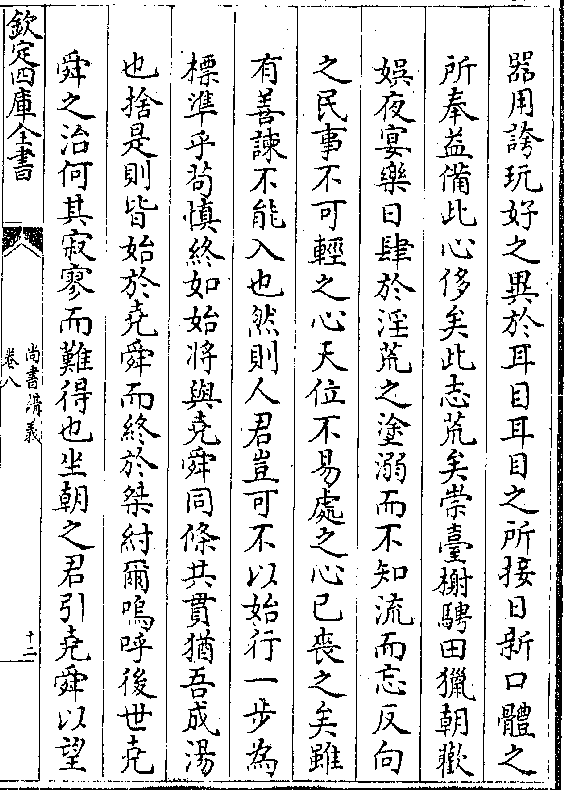 器用誇玩好之異於耳目耳目之所接日新口體之
所奉益備此心侈矣此志荒矣崇臺榭騁田獵朝歡
娯夜宴樂日肆於淫荒之塗溺而不知流而忘反向
之民事不可輕之心天位不易處之心已喪之矣雖
有善諫不能入也然則人君豈可不以始行一步為
標準乎茍慎終如始將與堯舜同條共貫猶吾成湯
也捨是則皆始於堯舜而終於桀紂爾嗚呼後世堯
舜之治何其寂寥而難得也坐朝之君引堯舜以望
欽定四庫全書
尚書講義
卷八
十二